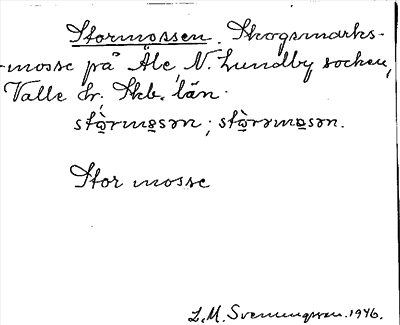 Stormossen. Skogsmarks-
-mosse på Åle, N. Lundby socken,
Valle hr, Skb. län.
stòrmosən; stòrəmosən.
Stor mosse
L. M. Svenungsson. 1946.